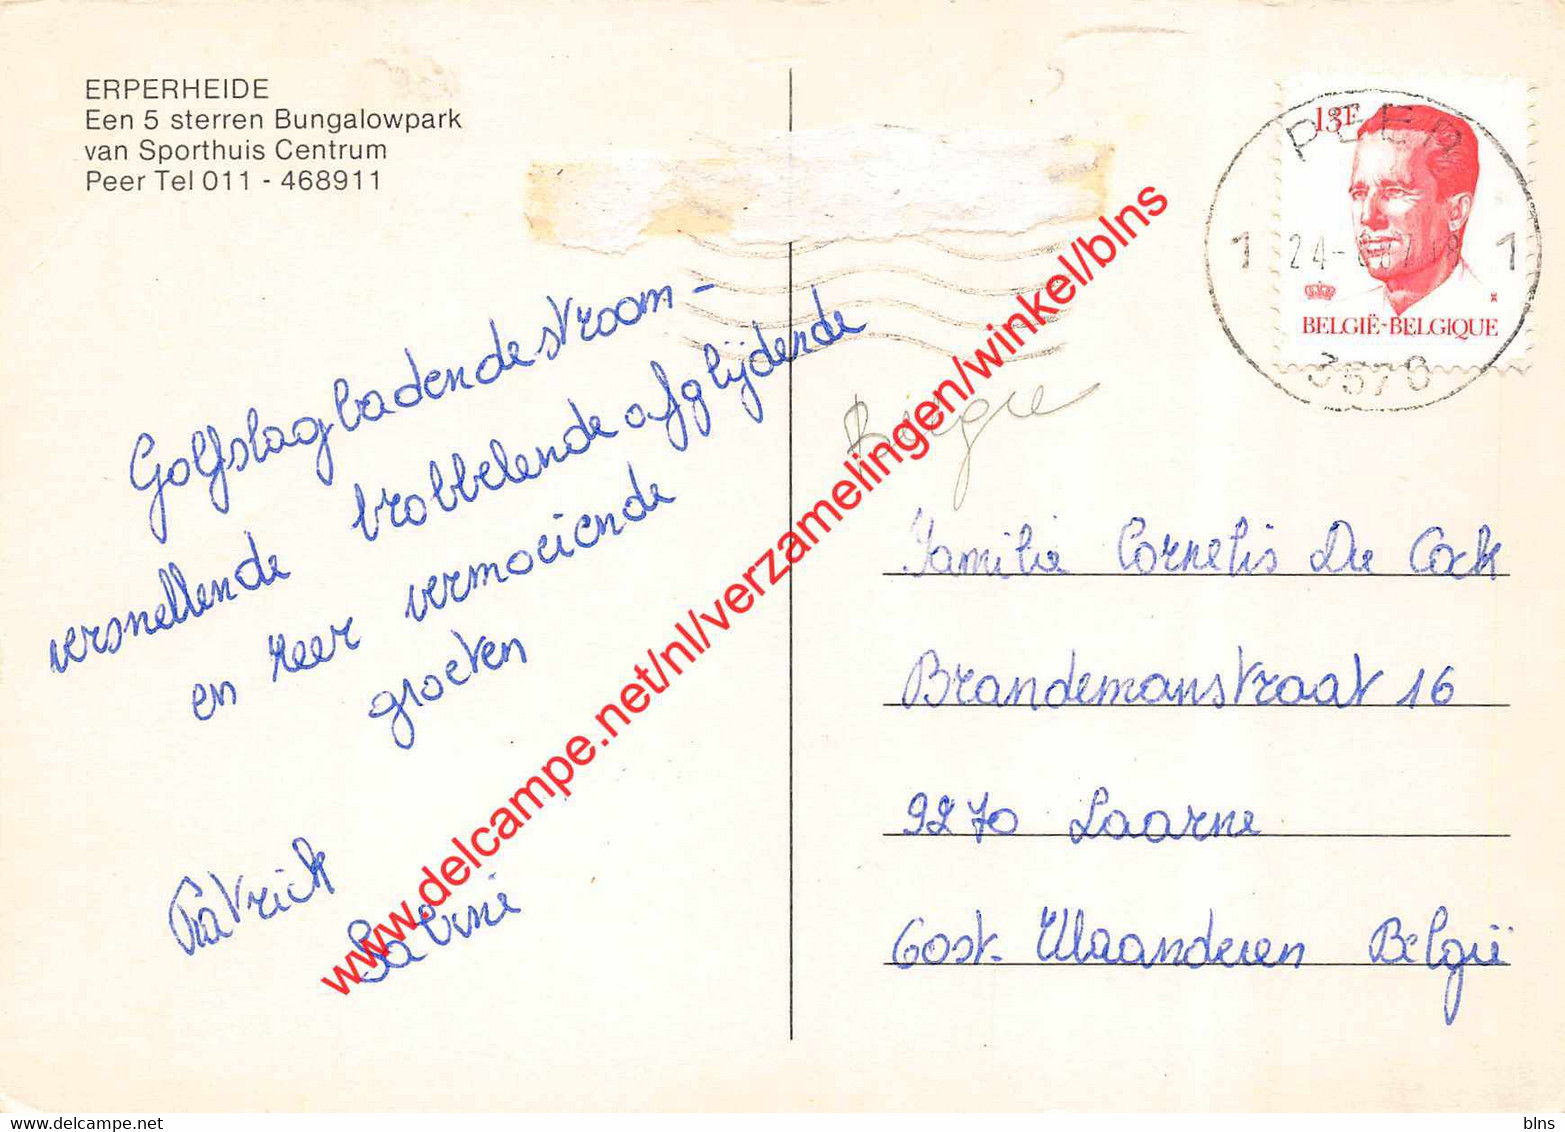 ERPERHEIDE
Een 5 sterren Bungalowpark
van Sporthuis Centrum
Peer Tel 011 - 468911
Golfslagbadendestroom-
versnellende brobbelende afglijdende
en zeer vermoeiende
groeten
Patrick
Sabine
13F
BELGIË-BELGIQUE
PEER
1 24- 1
3570
Belgie
Familie Cornelis De Cock
Brandemanstraat 16
9270 Laarne
Oost-Vlaanderen België
www.delcampe.net/nl/verzamelingen/winkel/blns
blns